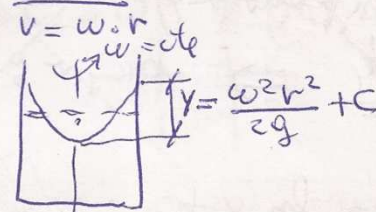 v = ω . r
ω = cte
y = ω²r² / 2g + C